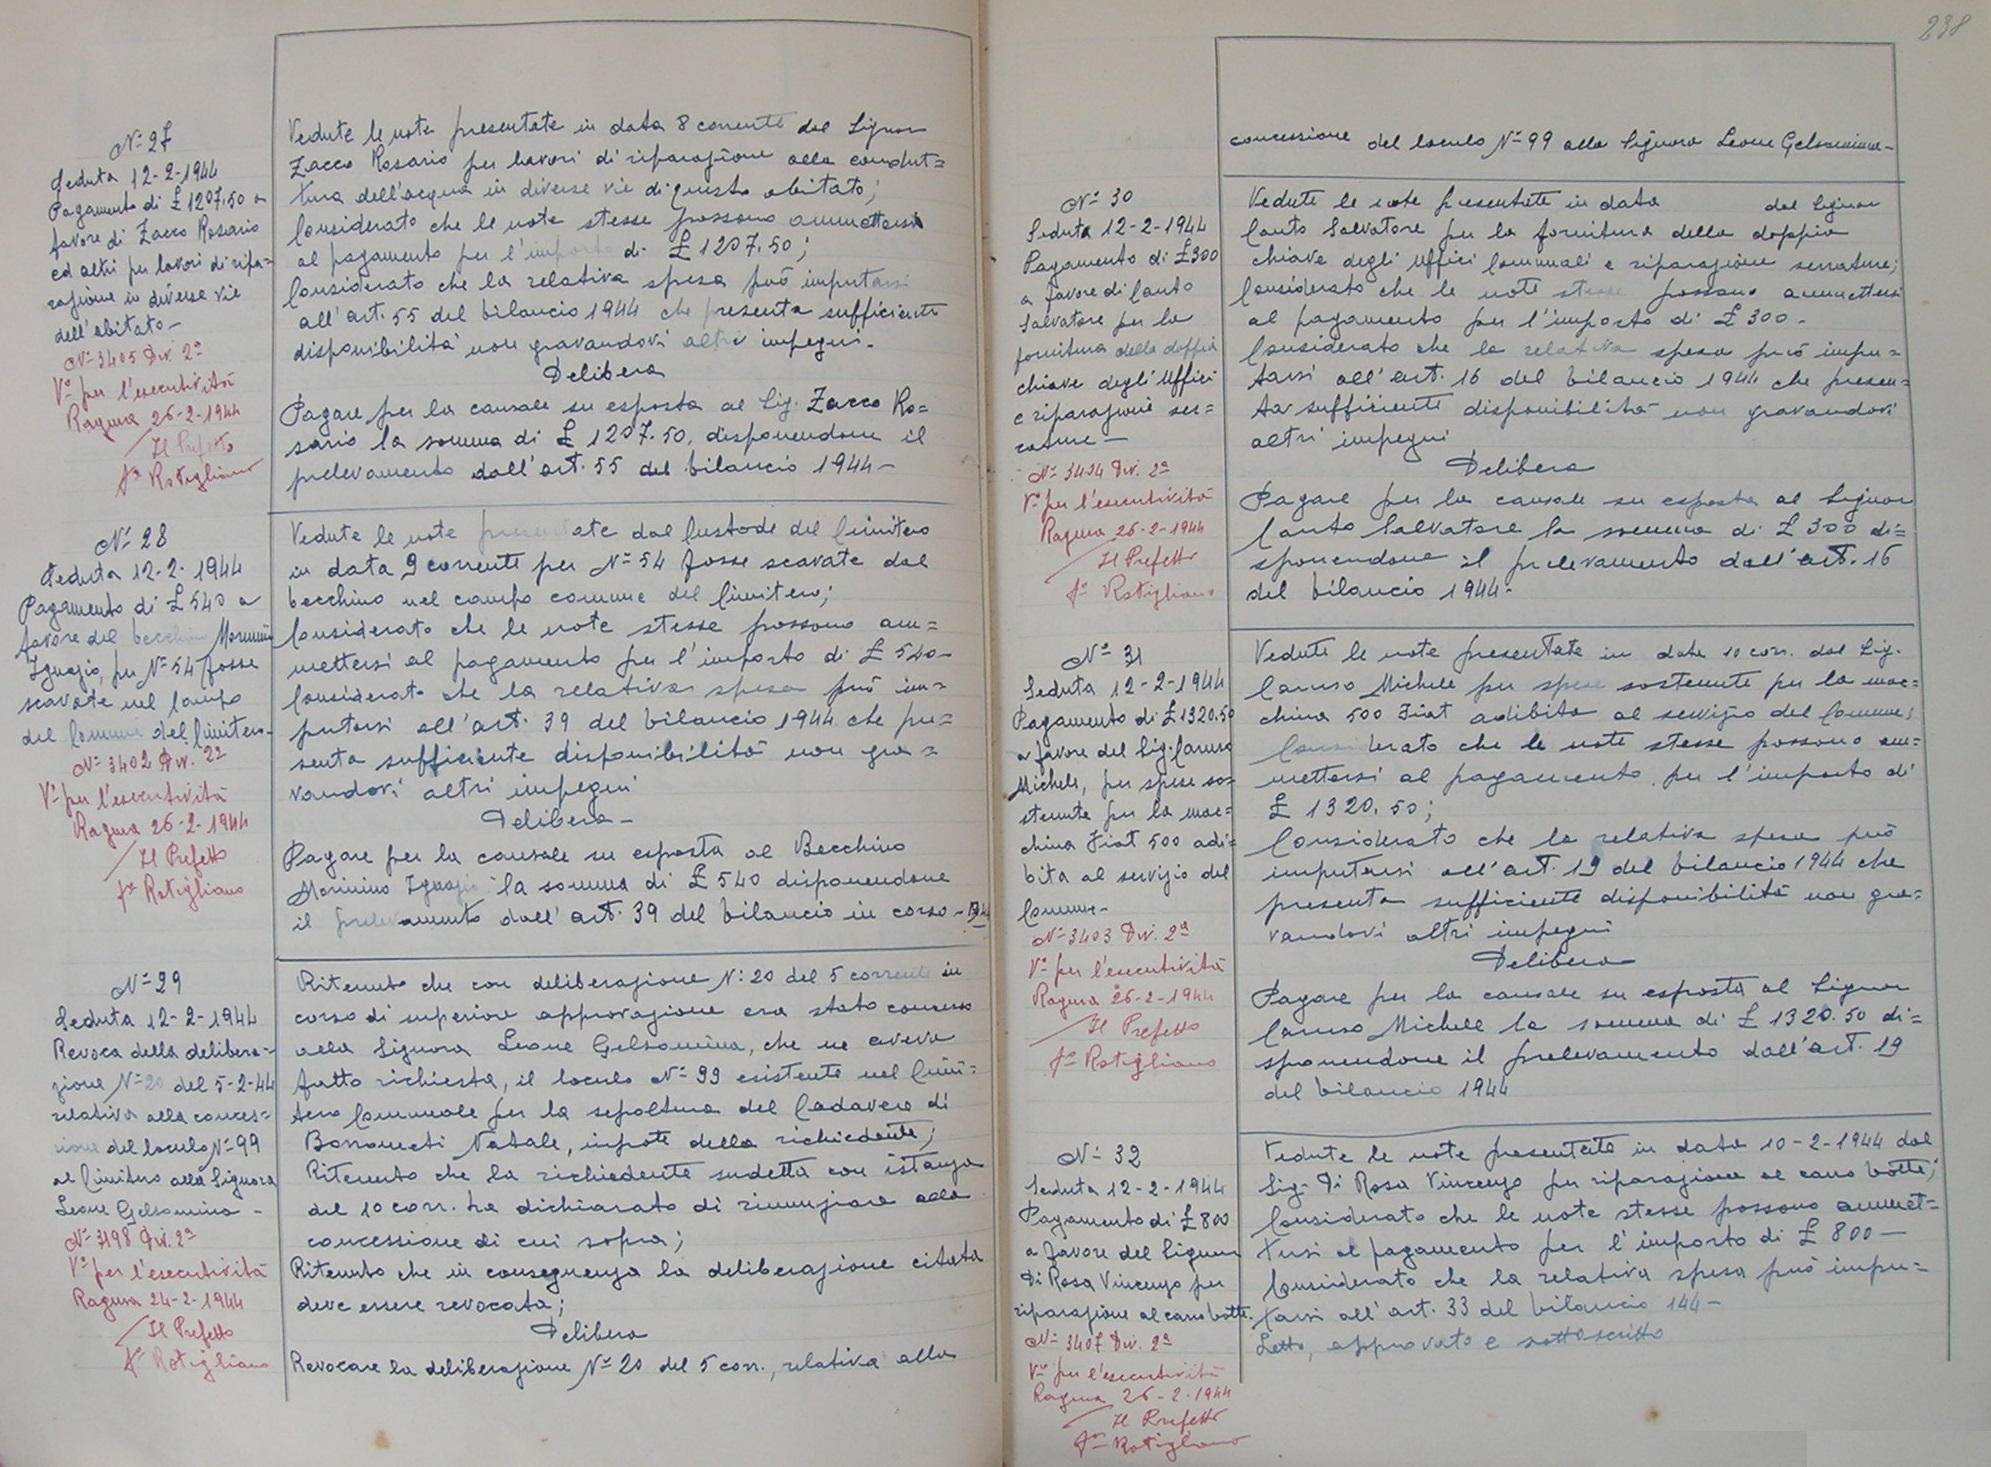 N° 27
Seduta 12-2-1944
Pagamento di £ 1207.50 a
favore di Zacco Rosario
ed altri per lavori di ripa=
razione in diverse vie
dell'abitato -
N° 3405 Div. 2ª
V° per l'esecutività
Ragusa 26-2-1944
Il Prefetto
fº Rotigliano
Vedute le note presentate in data 8 corrente dal Signor
Zacco Rosario per lavori di riparazione alla condut=
tura dell'acqua in diverse vie di questo abitato;
Considerato che le note stesse possono ammettersi
al pagamento per l'importo di £ 1207.50;
Considerato che la relativa spesa può imputarsi
all'art. 55 del bilancio 1944 che presenta sufficiente
disponibilità non gravandovi altri impegni.
Delibera
Pagare per la causale su esposta al Sig. Zacco Ro=
sario la somma di £ 1207.50, disponendone il
prelevamento dall'art. 55 del bilancio 1944 -
N° 28
Seduta 12-2-1944
Pagamento di £ 540 a
favore del becchino
Ignazio, per N° 54 fosse
scavate nel campo
del Comune del Cimitero -
N° 3402 Div. 2ª
V° per l'esecutività
Ragusa 26-2-1944
Il Prefetto
fº Rotigliano
Vedute le note presentate dal Custode del Cimitero
in data 9 corrente per N° 54 fosse scavate dal
becchino nel campo comune del Cimitero;
Considerato che le note stesse possono am=
mettersi al pagamento per l'importo di £ 540 -
Considerato che la relativa spesa può im=
putarsi all'art. 39 del bilancio 1944 che pre=
senta sufficiente disponibilità non gra=
vandovi altri impegni
Delibera -
Pagare per la causale su esposta al Becchino
Ignazio la somma di £ 540 disponendone
il prelevamento dall'art. 39 del bilancio in corso - 1944
N° 29
Seduta 12-2-1944
Revoca della delibera=
zione N° 20 del 5-2-44
relativa alla conces=
sione del loculo N° 99
al Cimitero alla Signora
Leone Gelsomina -
N° 3198 Div. 2ª
V° per l'esecutività
Ragusa 24-2-1944
Il Prefetto
fº Rotigliano
Ritenuto che con deliberazione N: 20 del 5 corrente in
corso di superiore approvazione era stato concesso
alla Signora Leone Gelsomina, che ne aveva
fatto richiesta, il loculo N° 99 esistente nel Cimi=
tero Comunale per la sepoltura del Cadavere di
Natale, nipote della richiedente;
Ritenuto che la richiedente sudetta con istanza
del 10 corr. ha dichiarato di rinunziare alla
concessione di cui sopra;
Ritenuto che in conseguenza la deliberazione citata
deve essere revocata;
Delibera
Revocare la deliberazione N° 20 del 5 corr., relativa alla
238
concessione del loculo N° 99 alla Signora Leone Gelsomina -
N° 30
Seduta 12-2-1944
Pagamento di £ 300
a favore di Canto
Salvatore per la
fornitura della doppia
chiave degli Uffici
e riparazione ser=
rature -
N° 3404 Div. 2ª
V° per l'esecutività
Ragusa 26-2-1944
Il Prefetto
fº Rotigliano
Vedute le note presentate in data dal Signor
Canto Salvatore per la fornitura della doppia
chiave degli Uffici Comunali e riparazione serrature;
Considerato che le note stesse possono ammettersi
al pagamento per l'importo di £ 300 -
Considerato che la relativa spesa può impu=
tarsi all'art. 16 del bilancio 1944 che presen=
ta sufficiente disponibilità non gravandovi
altri impegni
Delibera
Pagare per la causale su esposta al Signor
Canto Salvatore la somma di £ 300 di=
sponendone il prelevamento dall'art. 16
del bilancio 1944 -
N° 31
Seduta 12-2-1944
Pagamento di £ 1320.50
a favore del Sig. Caruso
Michele, per spese so=
stenute per la mac=
china Fiat 500 adi=
bita al servizio del
Comune -
N° 3403 Div. 2ª
V° per l'esecutività
Ragusa 26-2-1944
Il Prefetto
fº Rotigliano
Vedute le note presentate in data 10 corr. dal Sig.
Caruso Michele per spese sostenute per la mac=
china 500 Fiat adibita al servizio del Comune;
Considerato che le note stesse possono am=
mettersi al pagamento per l'importo di
£ 1320.50;
Considerato che la relativa spesa può
imputarsi all'art. 19 del bilancio 1944 che
presenta sufficiente disponibilità non gra=
vandovi altri impegni
Delibera
Pagare per la causale su esposta al Signor
Caruso Michele la somma di £ 1320.50 di=
sponendone il prelevamento dall'art. 19
del bilancio 1944
N° 32
Seduta 12-2-1944
Pagamento di £ 800
a favore del Signor
Di Rosa Vincenzo per
riparazione al carro botte.
N° 3407 Div. 2ª
V° per l'esecutività
Ragusa 26-2-1944
Il Prefetto
fº Rotigliano
Vedute le note presentate in data 10-2-1944 dal
Sig. Di Rosa Vincenzo per riparazione al carro botte;
Considerato che le note stesse possono ammet=
tersi al pagamento per l'importo di £ 800 -
Considerato che la relativa spesa può impu=
tarsi all'art. 33 del bilancio 144 -
Letto, approvato e sottoscritto